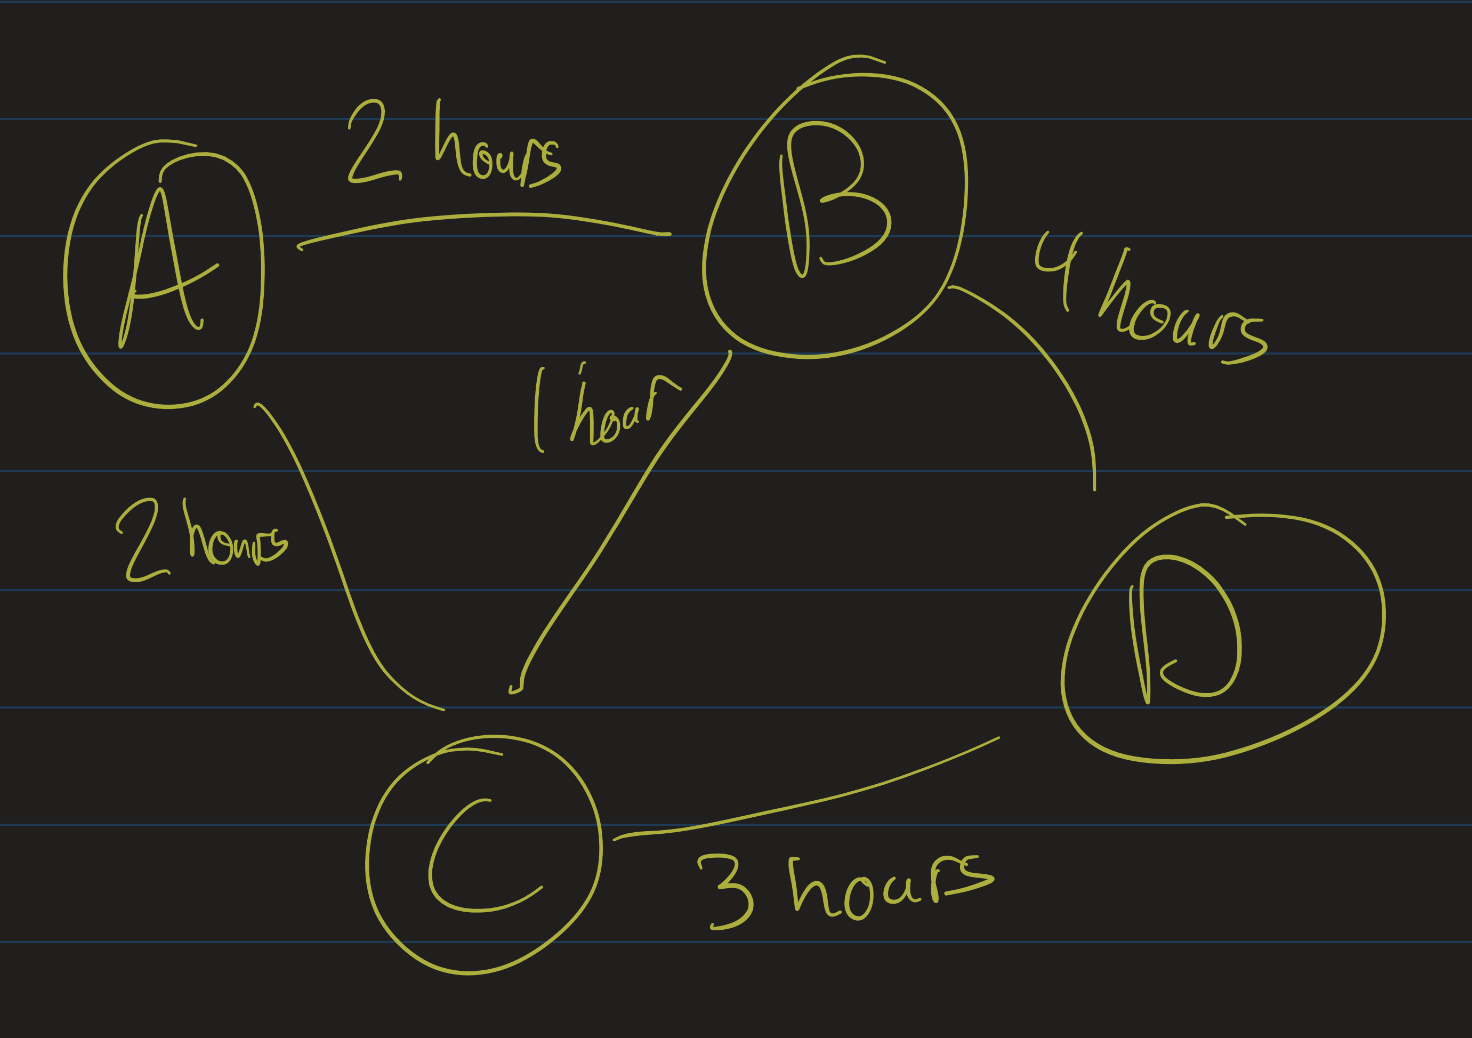 2 hours
A
B
4 hours
1 hour
2 hours
D
C
3 hours